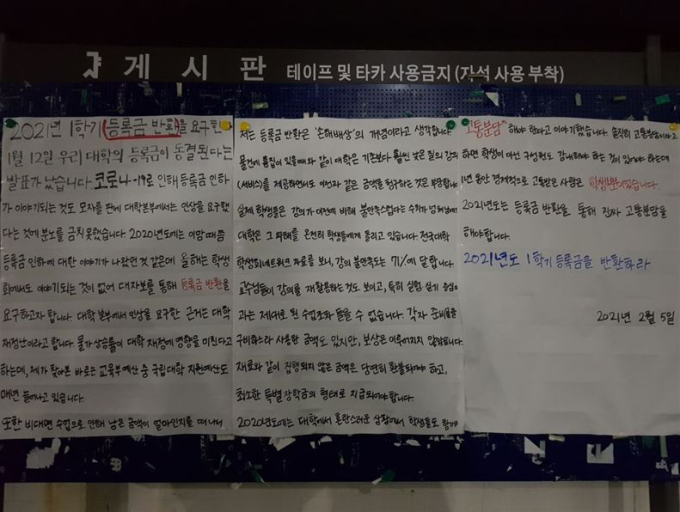 게시판 테이프 및 타카 사용금지 (자석 사용 부착)
2021년 1학기 (등록금 반환)을 요구한
1월 12일 우리 대학의 등록금이 동결된다는
발표가 났습니다. 코로나-19로 인해 등록금 인하
가 이야기되는 것도 모자를 판에 대학본부에서는 인상을 요구했
다는 것에 분노를 금치 못했습니다. 2020년도에는 이맘때쯤
등록금 인하에 대한 이야기가 나왔던 것 같은데 올해는 학생
회에서도 이야기되는 것이 없어 대자보를 통해 등록금 반환을
요구하고자 합니다. 대학 본부에서 인상을 요구한 근거는 대학
재정난이라고 합니다. 물가 상승률이 대학 재정에 영향을 미친다고
하는데, 제가 찾아본 바로는 교육부예산 중 국립대학 지원예산도
매년 늘어나고 있습니다.
또한 비대면 수업으로 인해 남은 금액이 얼마인지를 떠나서
저는 등록금 반환은 '손해배상'의 개념이라고 생각합니다
물건에 흠집이 있을때와 같이 대학은 기존보다 훨씬 낮은 질의 강의
(서비스)를 제공하면서도 여전과 같은 금액을 청구하는 것은 부당합니다
실제 학생들은 강의가 이전에 비해 불만족스럽다는 수치가
대학은 그 피해를 온전히 학생들에게 돌리고 있습니다. 전국대학
학생회네트워크 자료를 보니, 강의 불만족도는 71%에 달합니다.
교수님들이 강의를 재활용하는 것도 보이고, 특히 실험 실기 실습
과는 제대로 된 수업조차 들을 수 없습니다. 각자 준비물을
구비하느라 사용한 금액도 있지만, 보상은 이루어지지 않았습니다.
재료와 같이 집행되지 않은 금액은 당연히 환불되어야 하고,
최소한 특별 장학금의 형태로 지급되어야합니다.
2020년도에는 대학에서 혼란스러운 상황에서 학생들도 함께
고통분담 해야 한다고 이야기했습니다. 솔직히 고통분담이라고
하면 학생이 아닌 구성원도 감내해야 하는 것이 있어야 하는데
1년 동안 경제적으로 고통받은 사람은 학생뿐이었습니다.
2021년도는 등록금 반환을 통해 진짜 고통분담을
해야합니다.
2021년도 1학기 등록금을 반환하라
2021년 2월 5일